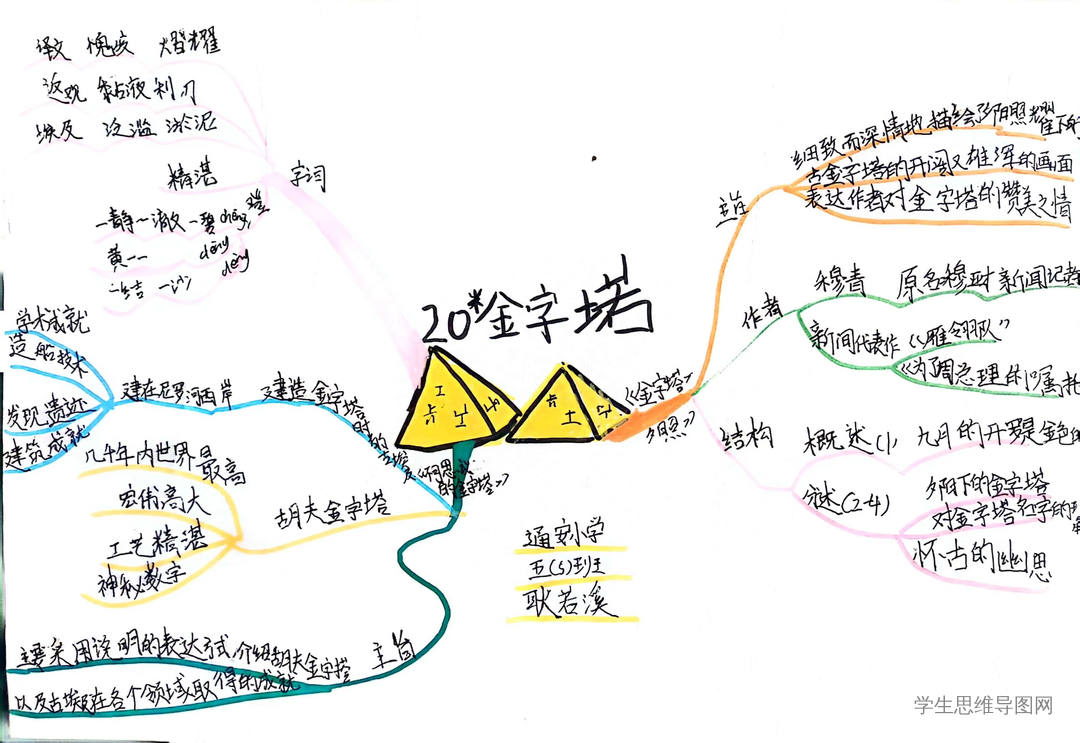 20*金字塔
字词
译文 愧疚 熠耀
返观 黏液 利刃
埃及 泛滥 淤泥
精湛
建造金字塔时的
建在尼罗河西岸
学术成就
造船技术
发现遗迹
建筑成就
胡夫金字塔
几千年内世界最高
宏伟高大
工艺精湛
神秘数字
主旨
主要采用说明的表达方式,介绍胡夫金字塔
以及古埃及在各个领域取得的成就
《不可思议的金字塔》
《金字塔夕照》
主旨
细致而深情地描绘夕阳照耀下的
古金字塔的开阔又雄浑的画面
表达作者对金字塔的赞美之情
作者
穆青 原名穆亚才 新闻记者
新闻代表作《雁翎队》
《为了周总理的嘱托
结构
概述(1) 九月的开罗是金色的
分述(2-4)
夕阳下的金字塔
对金字塔名字的
怀古的幽思
通安小学
五(5)班
耿若溪
学生思维导图网